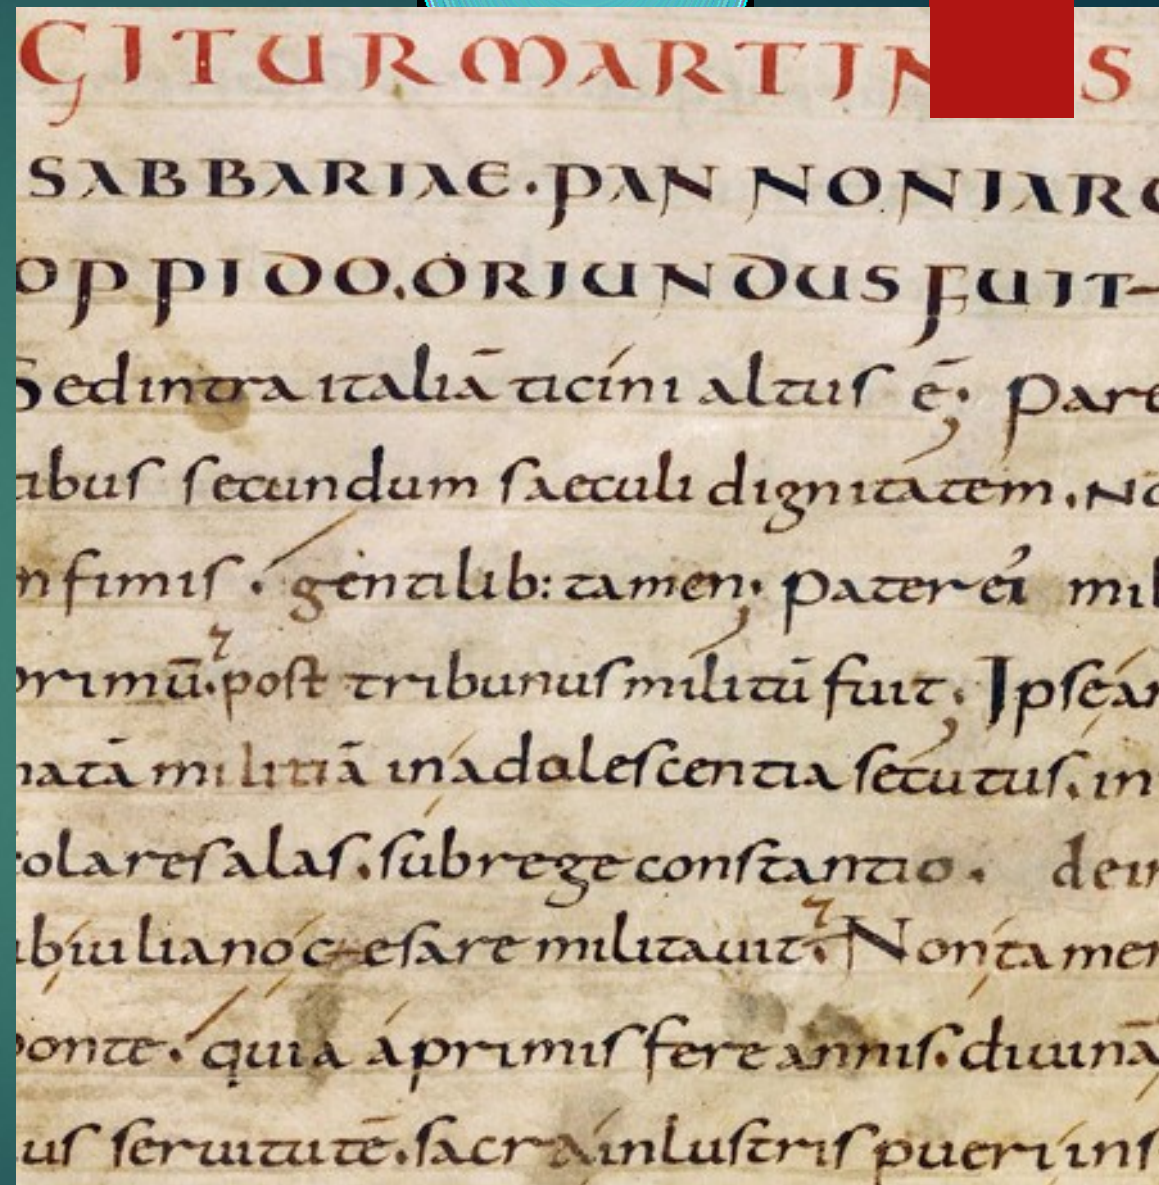 GITUR MARTIN S
SABBARIAE. PANNONIAR
OPPIDO. ORIUNDUS FUIT
Sed intra italiā ticini altus ē; Pare
tibus secundum saeculi dignitatem. No
nfimis. gentilib: tamen; Pater ei mil
rimū. post tribunus militū fuit; Ipse ar
matā militiā in adolescentia secutus. in
colares alas. sub rege constantio. dein
ubiuliano cesare militauit. Non tamen
ponte. quia a primis fere annis. diuinā
us seruitutē. sacra inlustris pueri ins